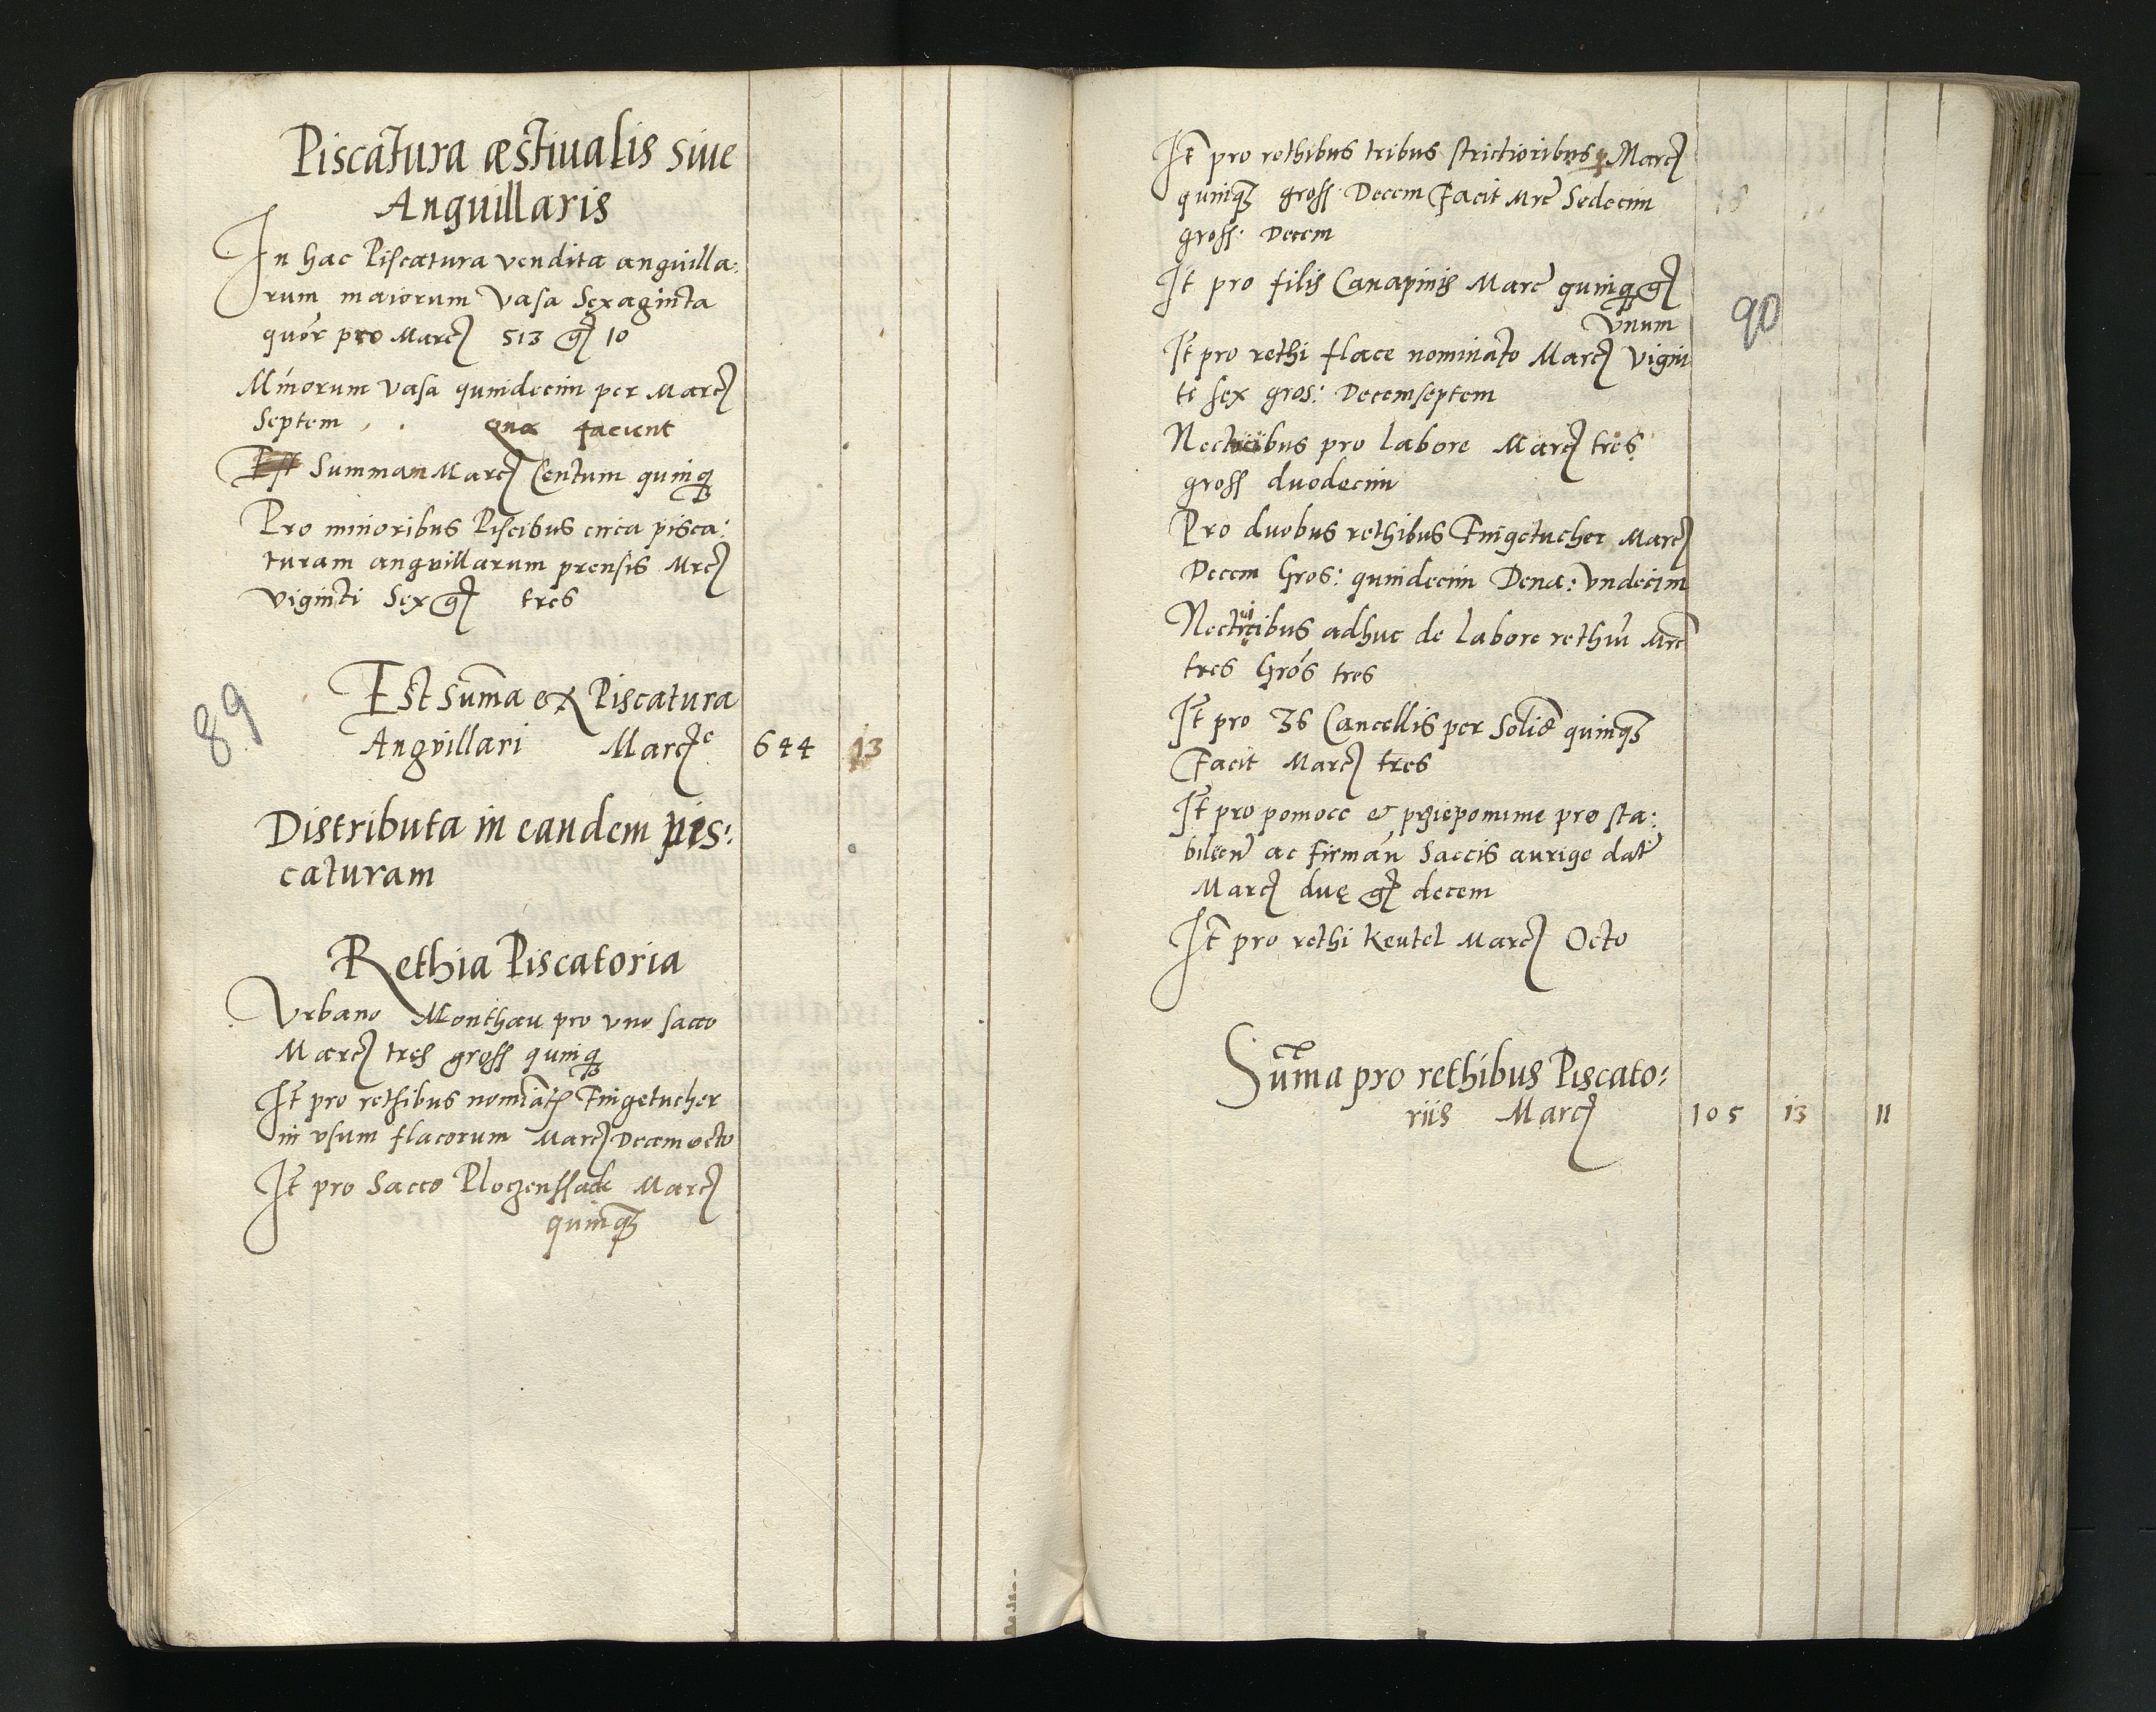 Piscatura æstiualis siue
Anguillaris
In hac Piscatura vendita anguilla:
rum maiorum Vasa Sexaginta
quor pro Marc 513 g 10
Minorum Vasa quindecim per Marc
Septem quæ faciunt
Est Summam Marc Centum quinq
Pro minoribus Piscibus circa pisca:
turam anguillarum prensis Mrc
Viginti Sex g tres
89
Est Suma ex Piscatura
Anguillari Marc 644 13
Distributa in eandem pis:
caturam
Rethia Piscatoria
Vrbano Monthau pro vno sacco
Marc tres gross quinq
It pro rethibus nominat Fingetucher
in vsum flacorum Marc Decem octo
It pro Sacco Ploczenssack Marc
quinq
It pro rethibus tribus strictioribus p Marc
quinq gross Decem Facit Mrc Sedecim
gross: Decem
It pro filis Canapinis Marc quinq g
Vnum
90
It pro rethi flace nominato Marc Vigin
ti sex gros: Decemseptem
Nectricibus pro labore Marc tres
gross duodecim
Pro duobus rethibus Fingetucher Marc
Decem Gros: quindecim Dena: Vndecim
Nectricibus adhuc de labore rethiu Mrc
tres Gros tres
It pro 36 Cancellis per Solid quinq
Facit Marc tres
It pro pomocc & prziepomime pro sta:
ac firman Saccis aurige dat
Marc duę g decem
It pro rethi Keutel Marc Octo
Suma pro rethibus Piscato:
riis Marc 105 13 11